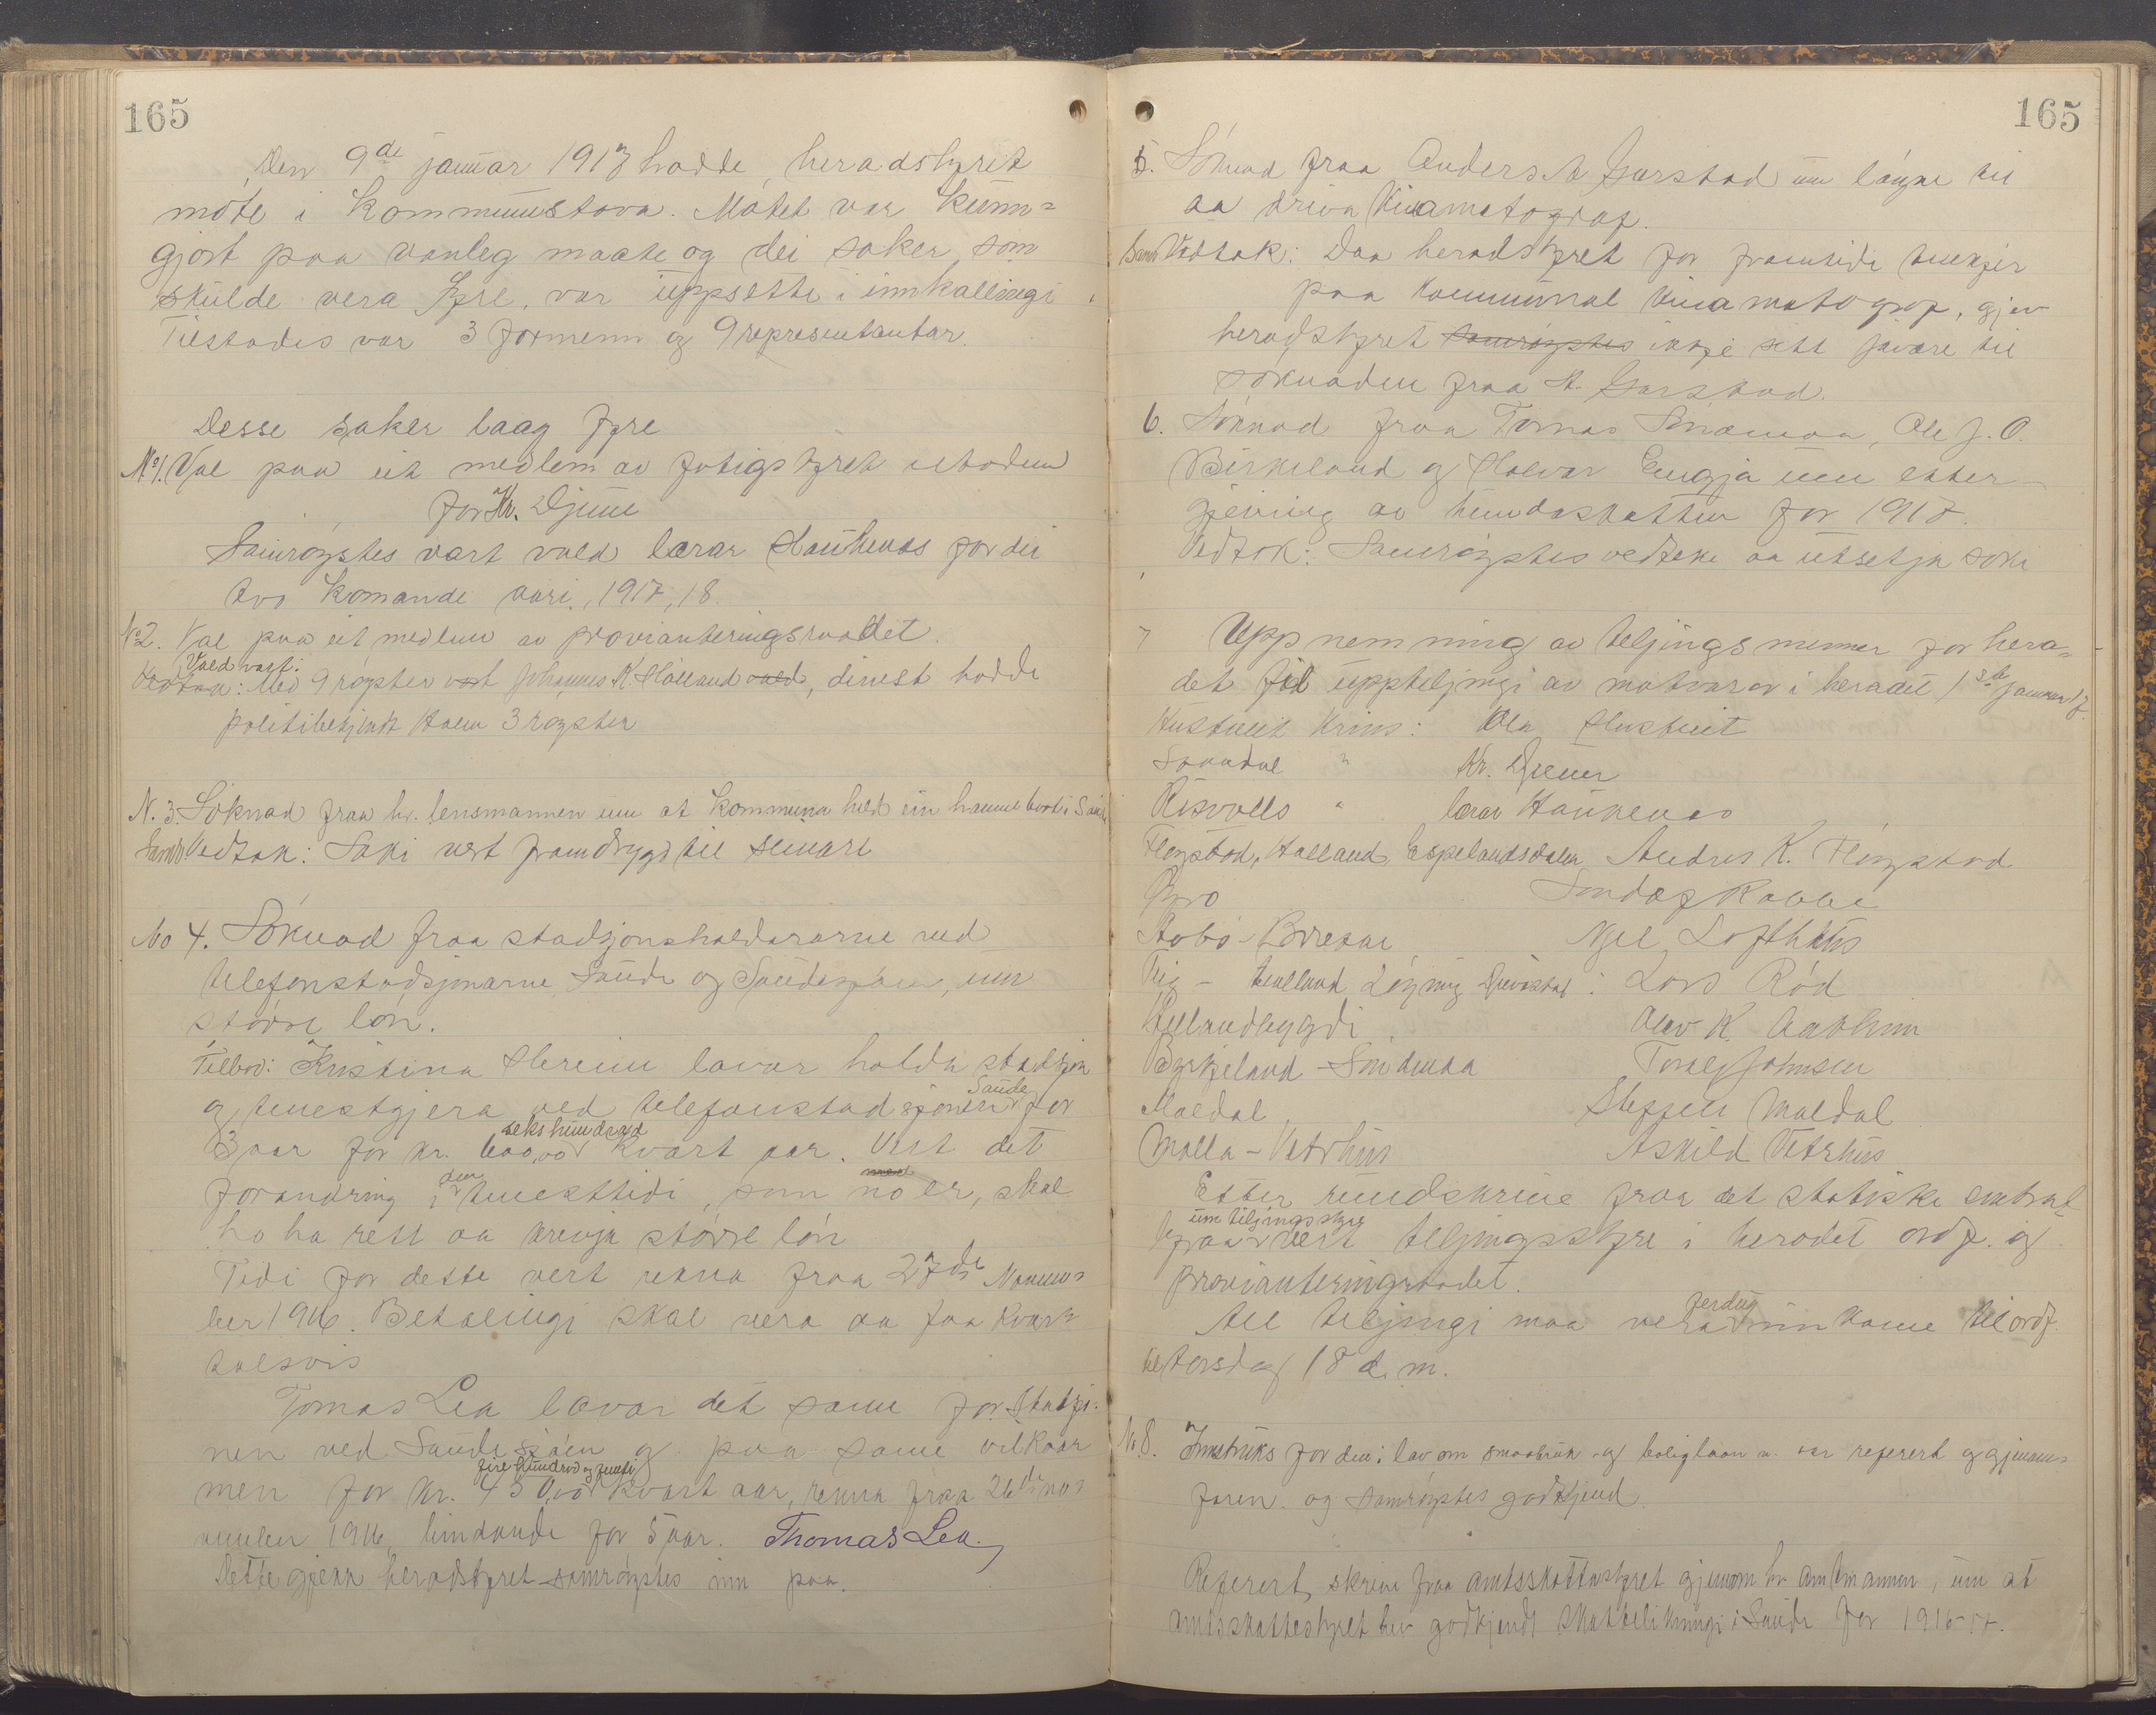 165
Den 9de januar 1917 hadde heradstyret
møte i Kommunestova. Møtet var kunn=
gjort paa vanleg maate og dei saker som
skulde vera fyre, var uppsette i innkallingi
Tilstades var 3 formenn og 9 representantar.
Desse saker laag fyre
No 1. Val paa eit medlem av fatigstyret istaden
for Kr. Djuve
Samrøystes vart vald lærar Haukenæs for dei
tvo komande aari, 1917, 18.
No 2. Val paa eit medlem av provianteringsraadet.
Vald vart:
Vedtak: Med 9 røyster vart Johannes K. Hålland vald, dinest hadde
politibetjent Holm 3 røyster
N. 3. Søknad fraa hr. lensmannen um at kommuna held ein hamnebaat i Saude
Samr. Vedtak: Saki vert framdrygd til seinare
No 4. Søknad fraa stadsjonshaldararne ved
telefonstadsjonarne Saude og Saudesjøen, um
større løn.
Tilbod: Kristina Hereim lovar halda stadsjon
og tenestgjera ved telefonstadsjonen Saude for
3 aar for kr. 600,00 sekshundrad kvart aar. Vert det
forandring i den tenesttidi, som no er, skal
ho ha rett aa krevja større løn
Tidi for dette vert rekna fraa 27de Novem=
ber 1916. Betalingi skal vera aa faa kvar=
talsvis
Tomas Lea lovar det same for Stadsjo=
nen ved Saudesjøen og paa same vilkaar
men for kr. 450,00 fire hundrad og femti kvart aar, rekna fraa 26de no=
vember 1916, bindande for 5 aar. Thomas Lea.
Dette gjekk heradstyret samrøystes inn paa.
165
5. Søknad fraa Anders A Garstad um løyve til
aa driva Kinamatograf.
Samr Vedtak: Daa heradstyret for framtidi tenkjer
paa kommunal kinamatograf, gjev
heradstyret samrøystes ikkje sitt svare til
søknaden fraa A. Garstad.
6. Søknad fraa Tomas Sønamoa, Ole J. O.
Birkeland og Halvor Engja um etter-
gjeving av hundaskatten for 1917.
Vedtak: Samrøystes vedteke aa utsetja saki
7 Uppnemning av teljingsmenner for hera=
det til uppteljingi av matvaror i heradet 1ste januar 17.
Hustveit krins: Ola Hustveit
Saudal " Kr. Djuve
Risvolls " lærar Haukenæs
Fløgstad, Halland, Espelandsdalen Andres K. Fløgstad
Øyro Sondof Rabbe
Aabø - Brekke Njel Lofthus
Lars Rød
Hellandbygdi Olav K. Aarhun
Byrkjeland - Søndenaa Torolf Johnsen
Maldal Steffen Maldal
Molla - Vetrhus Askild Vetrhus
Etter rundskrive fraa det statiske sentral
byraa um teljingsstyre vert teljingsstyre i heradet ordf. og
provianteringsraadet.
All teljingi maa vera ferdug innkome til ordf.
til torsdag 18 d. m.
No 8. Instruks for den i lov om smaabruk og boliglaan n. var referert og gjennom=
faren. og samrøystes godkjend.
Referert skrive fraa amtsskattastyret gjenom hr Amtmannen, um at
amtsskattestyret hev godkjendt skattelikningi i Saude for 1916-17.